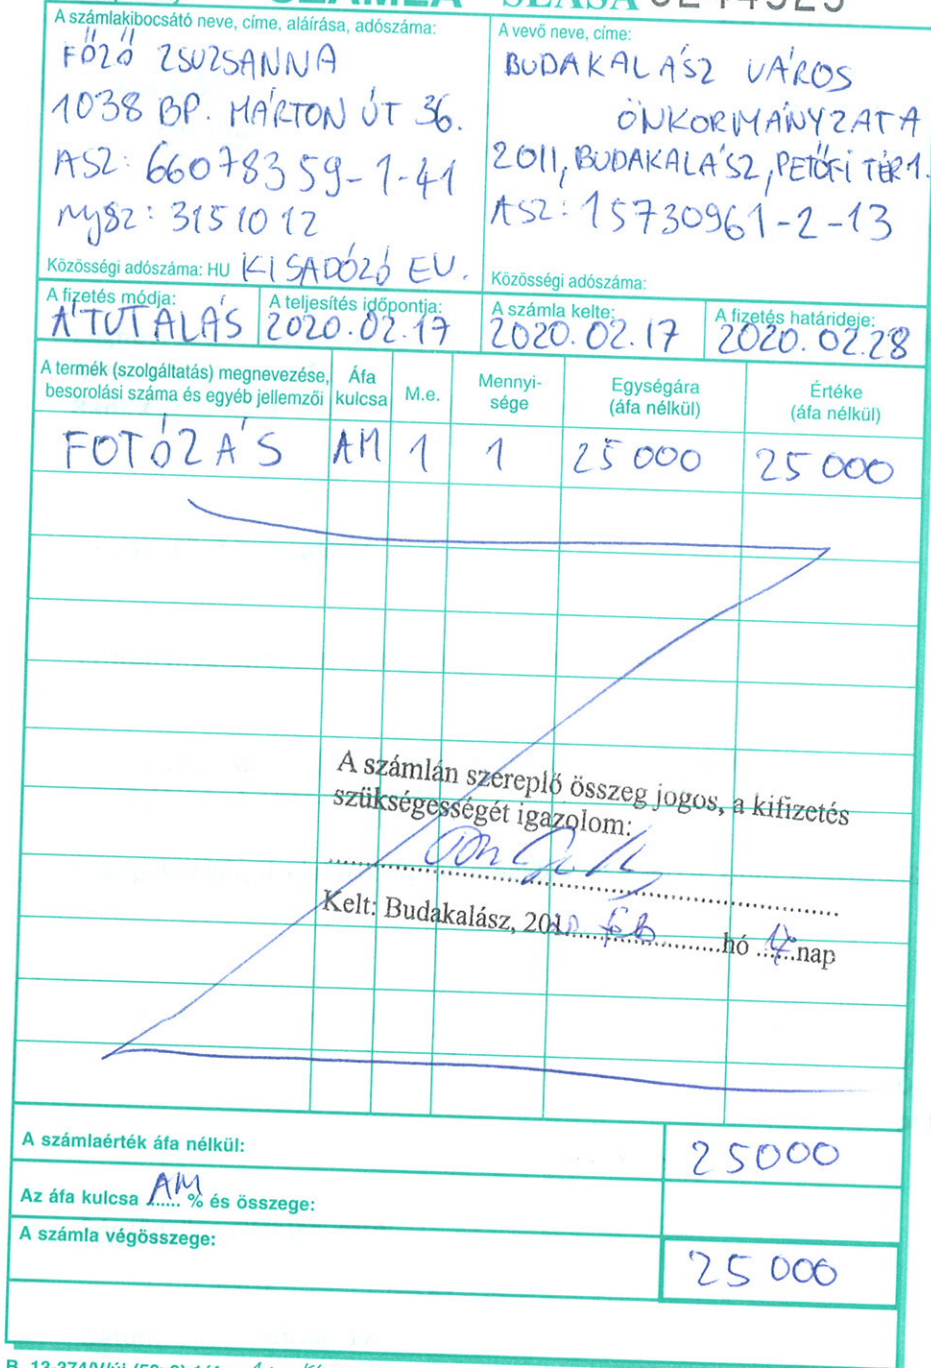 SZÁMLA SEASA
A számlakibocsátó neve, címe, aláírása, adószáma:
FŐZŐ ZSUZSANNA
1038 BP. MÁRTON ÚT 36.
ASZ: 66078359-1-41
nysz: 3151012
Közösségi adószáma: HU KISADÓZÓ EV.
A vevő neve, címe:
BUDAKALÁSZ VÁROS
ÖNKORMÁNYZATA
2011, BUDAKALÁSZ, PETŐFI TÉR 1.
ASZ: 15730961-2-13
Közösségi adószáma:
A fizetés módja:
ÁTUTALÁS
A teljesítés időpontja:
2020.02.17
A számla kelte:
2020.02.17
A fizetés határideje:
2020.02.28
A termék (szolgáltatás) megnevezése, besorolási száma és egyéb jellemzői
Áfa kulcsa
M.e.
Mennyi-
sége
Egységára
(áfa nélkül)
Értéke
(áfa nélkül)
FOTÓZÁS AM 1 1 25 000 25 000
A számlán szereplő összeg jogos, a kifizetés
szükségességét igazolom:
Kelt: Budakalász, 2020 feb hó 17 nap
A számlaérték áfa nélkül: 25000
Az áfa kulcsa AM % és összege:
A számla végösszege: 25 000